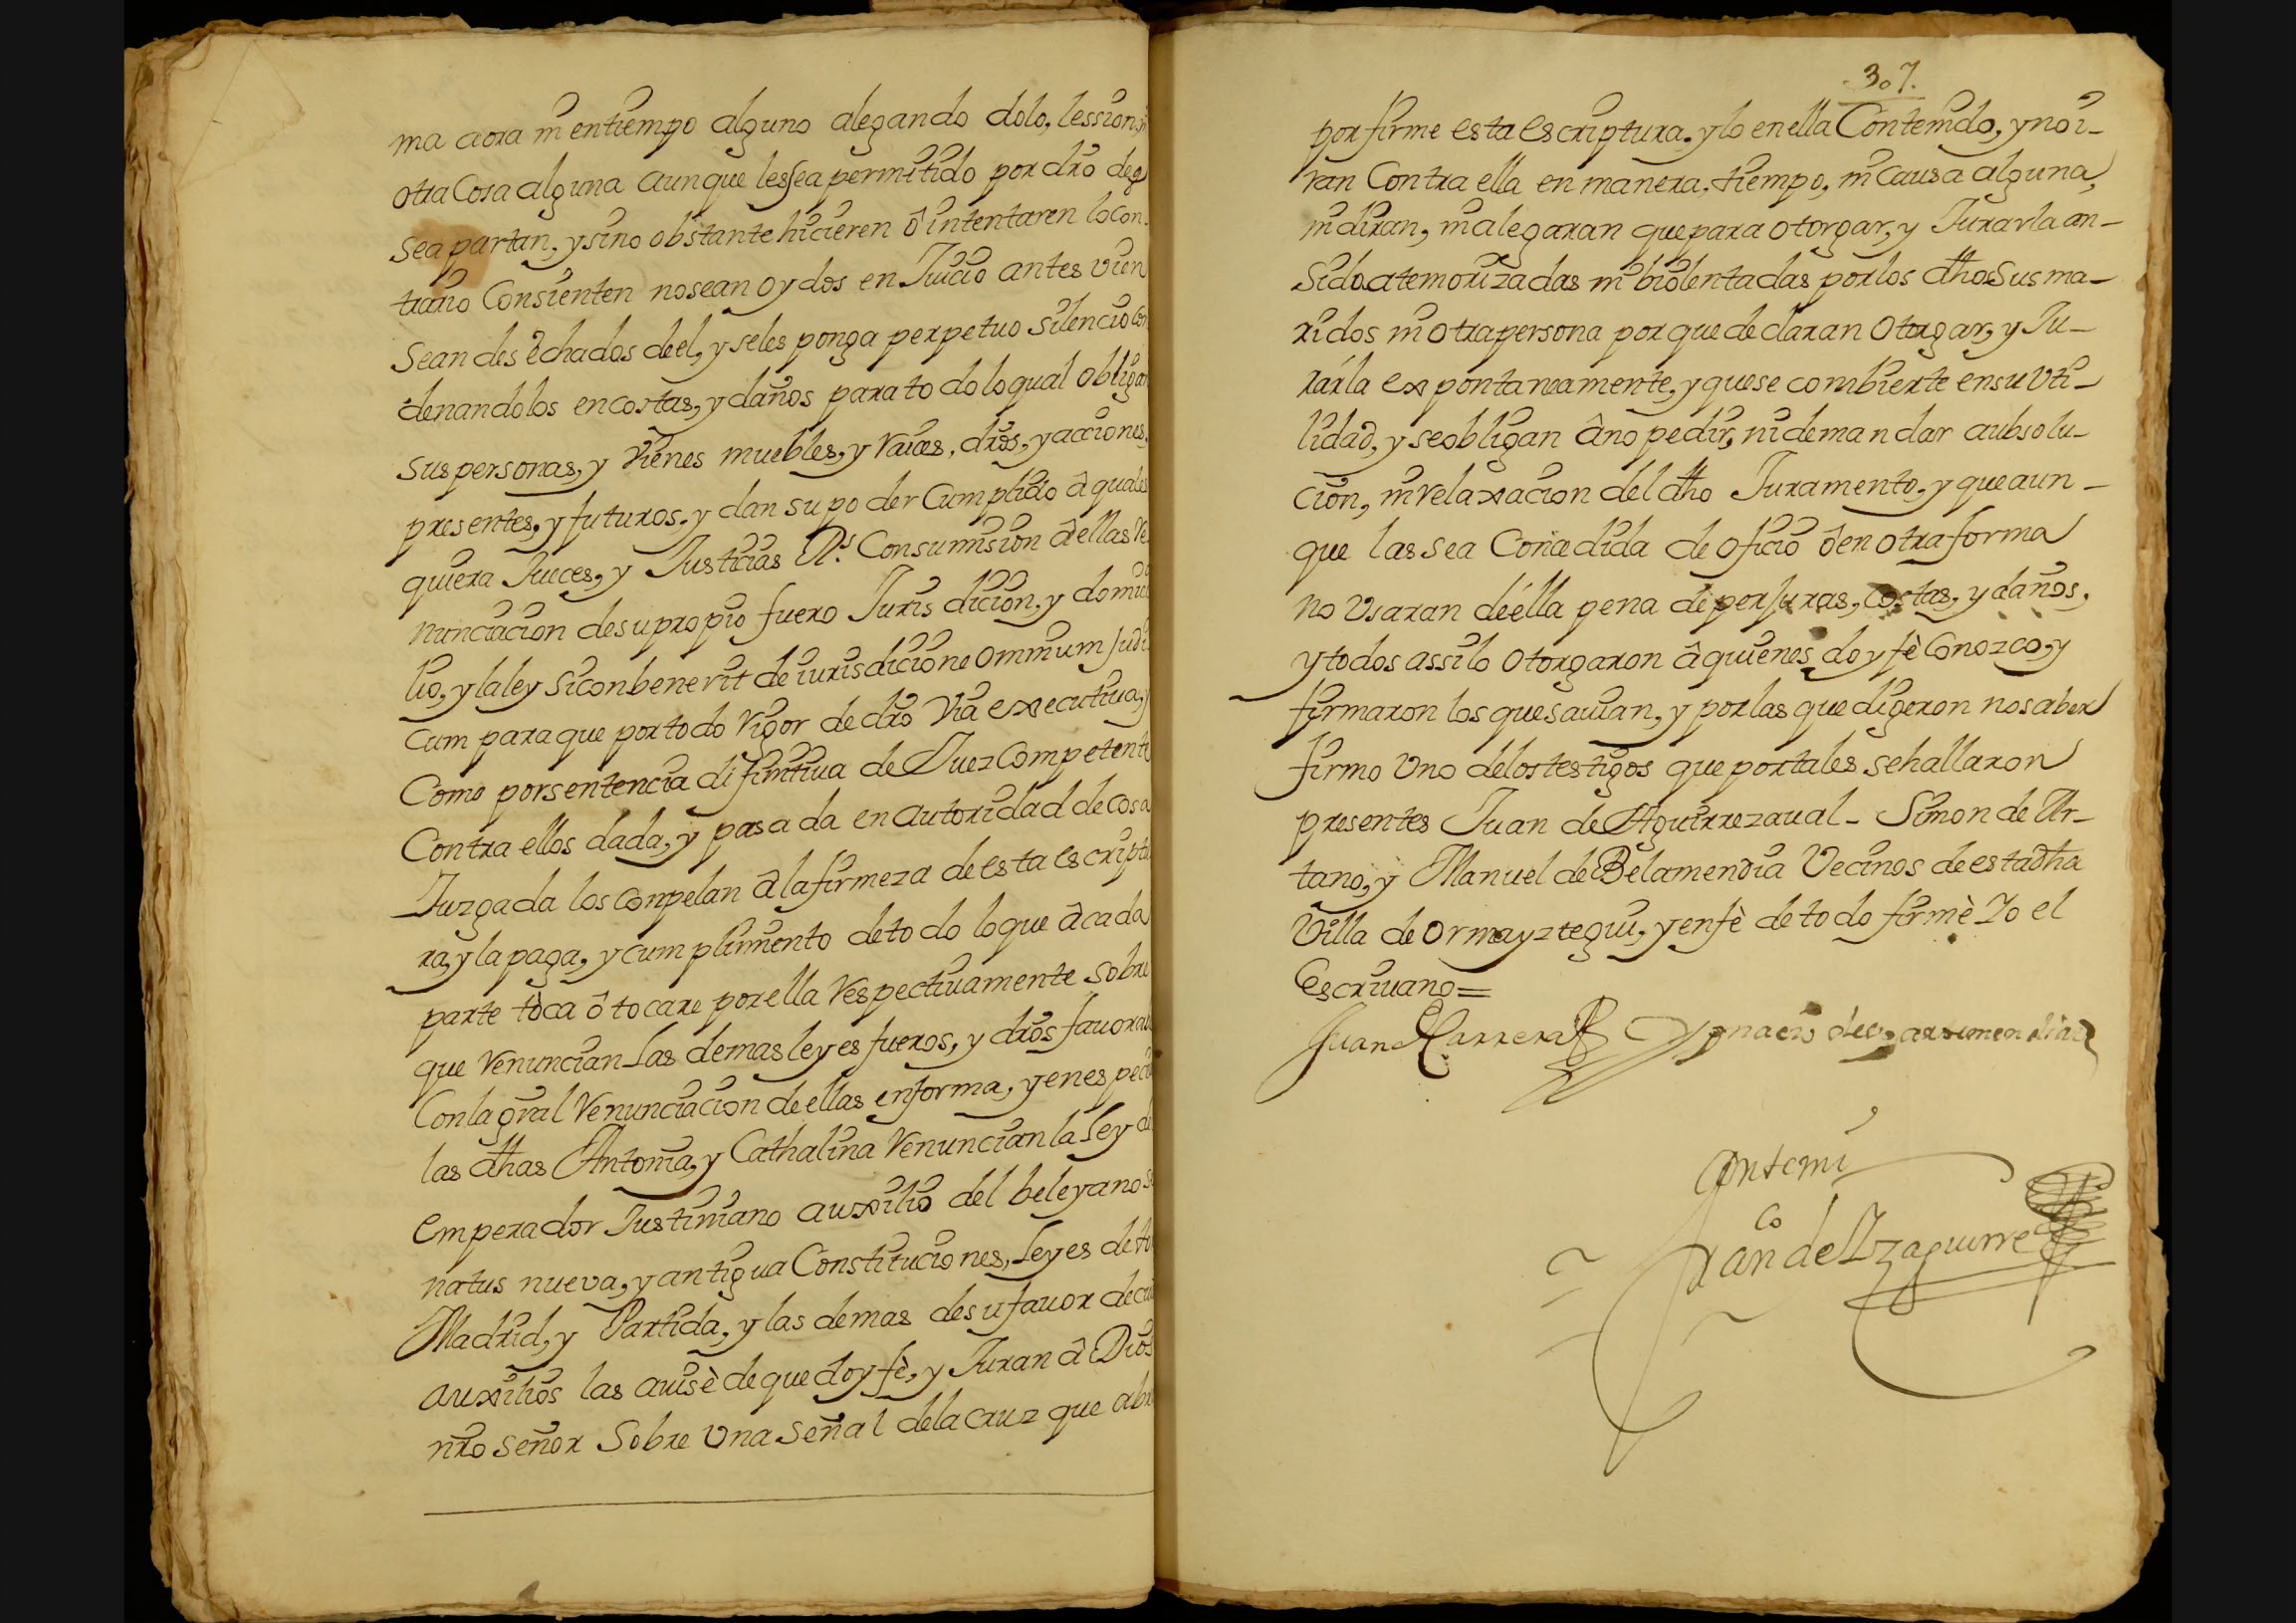 ma aora ni entiempo alguno alegando dolo, lession, ni
otra Cosa alguna aunque les sea permitido por dro deq
se apartan, y sino obstante hicieren ô intentaren lo con-
trario Consienten no sean oydos en Juicio antes vien
Sean desechados de el, y seles ponga perpetuo silencio con
denandolos en costas, y daños para todo lo qual obligan
sus personas, y vienes muebles, y raices, dros, y acciones,
presentes, y futuros, y dan su poder Cumplido â quales
quiera Jueces, y Justicias Rs. Consumision â ellas Re
nunciacion de su propio fuero Jurisdicion, y domici
lio, y la ley siconbenerit de iurisdicione omnium Judi
cum para que por todo Rigor de dro Via executiua, y
Como por sentencia difinitiua de Juez Competente
Contra ellos dada, y pasada en autoridad de cosa
Juzgada los Conpelan â la firmeza de esta escriptu
ra, y la paga, y cumplimiento de todo lo que â cada
parte tòca ô tocare por ella Respectiuamente sobre
que Renuncian Las demas leyes fueros, y dros fauorab
Con la gral Renunciacion de ellas en forma, y en especi
las dhas Antonia, y Cathalina Renuncian la Ley del
Emperador Justiniano auxilio del beleyano se
natus nueva, y antigua Constituciones, Leyes de to
Madrid, y Partida, y las demas de su fauor de cui
auxilios las auisè de que doy fè, y Juran â Dios
nro señor Sobre una señal dela cruz que abr
307.
por firme esta escriptura, y lo en ella Contenido, y no i-
ran Contra ella en manera, tiempo, ni Causa alguna,
ni diran, ni alegaran que para otorgar, y Jurarla an-
Sido atemorizadas ni biolentadas por los dhos Sus ma-
ridos ni otra persona por que declaran Otorgar, y Ju-
rárla expontaneamente, y que se combierte en su Uti-
lidad, y se obligan â no pedir, ni demandar aubsolu-
cion, ni relaxacion del dho Juramento, y que aun-
que las sea Concedida de oficio ô en otra forma
no Usaran de élla pena de perjuras, costas, y daños,
y todos assi lo otorgaron â quienes doy fè Conozco, y
firmaron los que sauian, y por las que digeron no saber
firmo Uno de los testigos que por tales se hallaron
presentes Juan de Aguirrezaual - Simon de Ar-
tano, y Manuel de Belamendia Vecinos de esta dha
Villa de ormayztegui, y en fè de todo firmè Yo el
Escriuano=
Juan Carrera Ygnacio de
Antemi
Franco de Yzaguirre